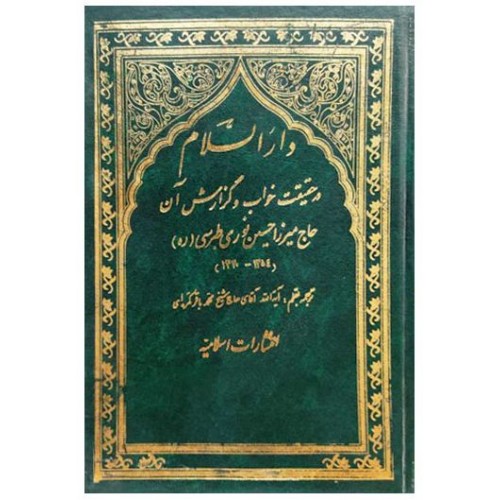 دار السلام
در حقیقت خواب و گزارش آن
حاج میرزا حسین نوری طبرسی (ره)
(۱۲۵۴ - ۱۳۲۰)
ترجمه بقلم: آیة‌الله آقای حاج شیخ محمد باقر کمره‌ای
انتشارات اسلامیه